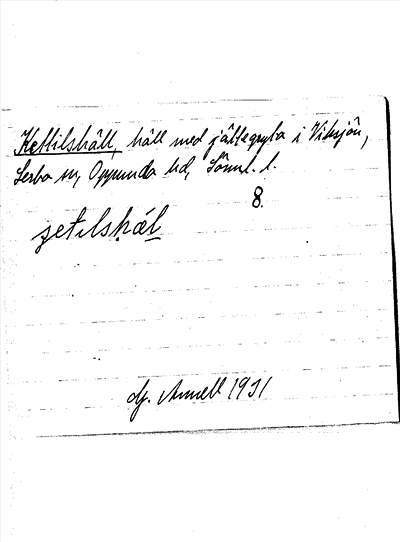 Kettilshäll, häll med jättegryta i Viksjön,
Lerbo sn, Oppunda hd, Sörml. l.
8.
ɟetɩlshäl
dg. Arnell 1931